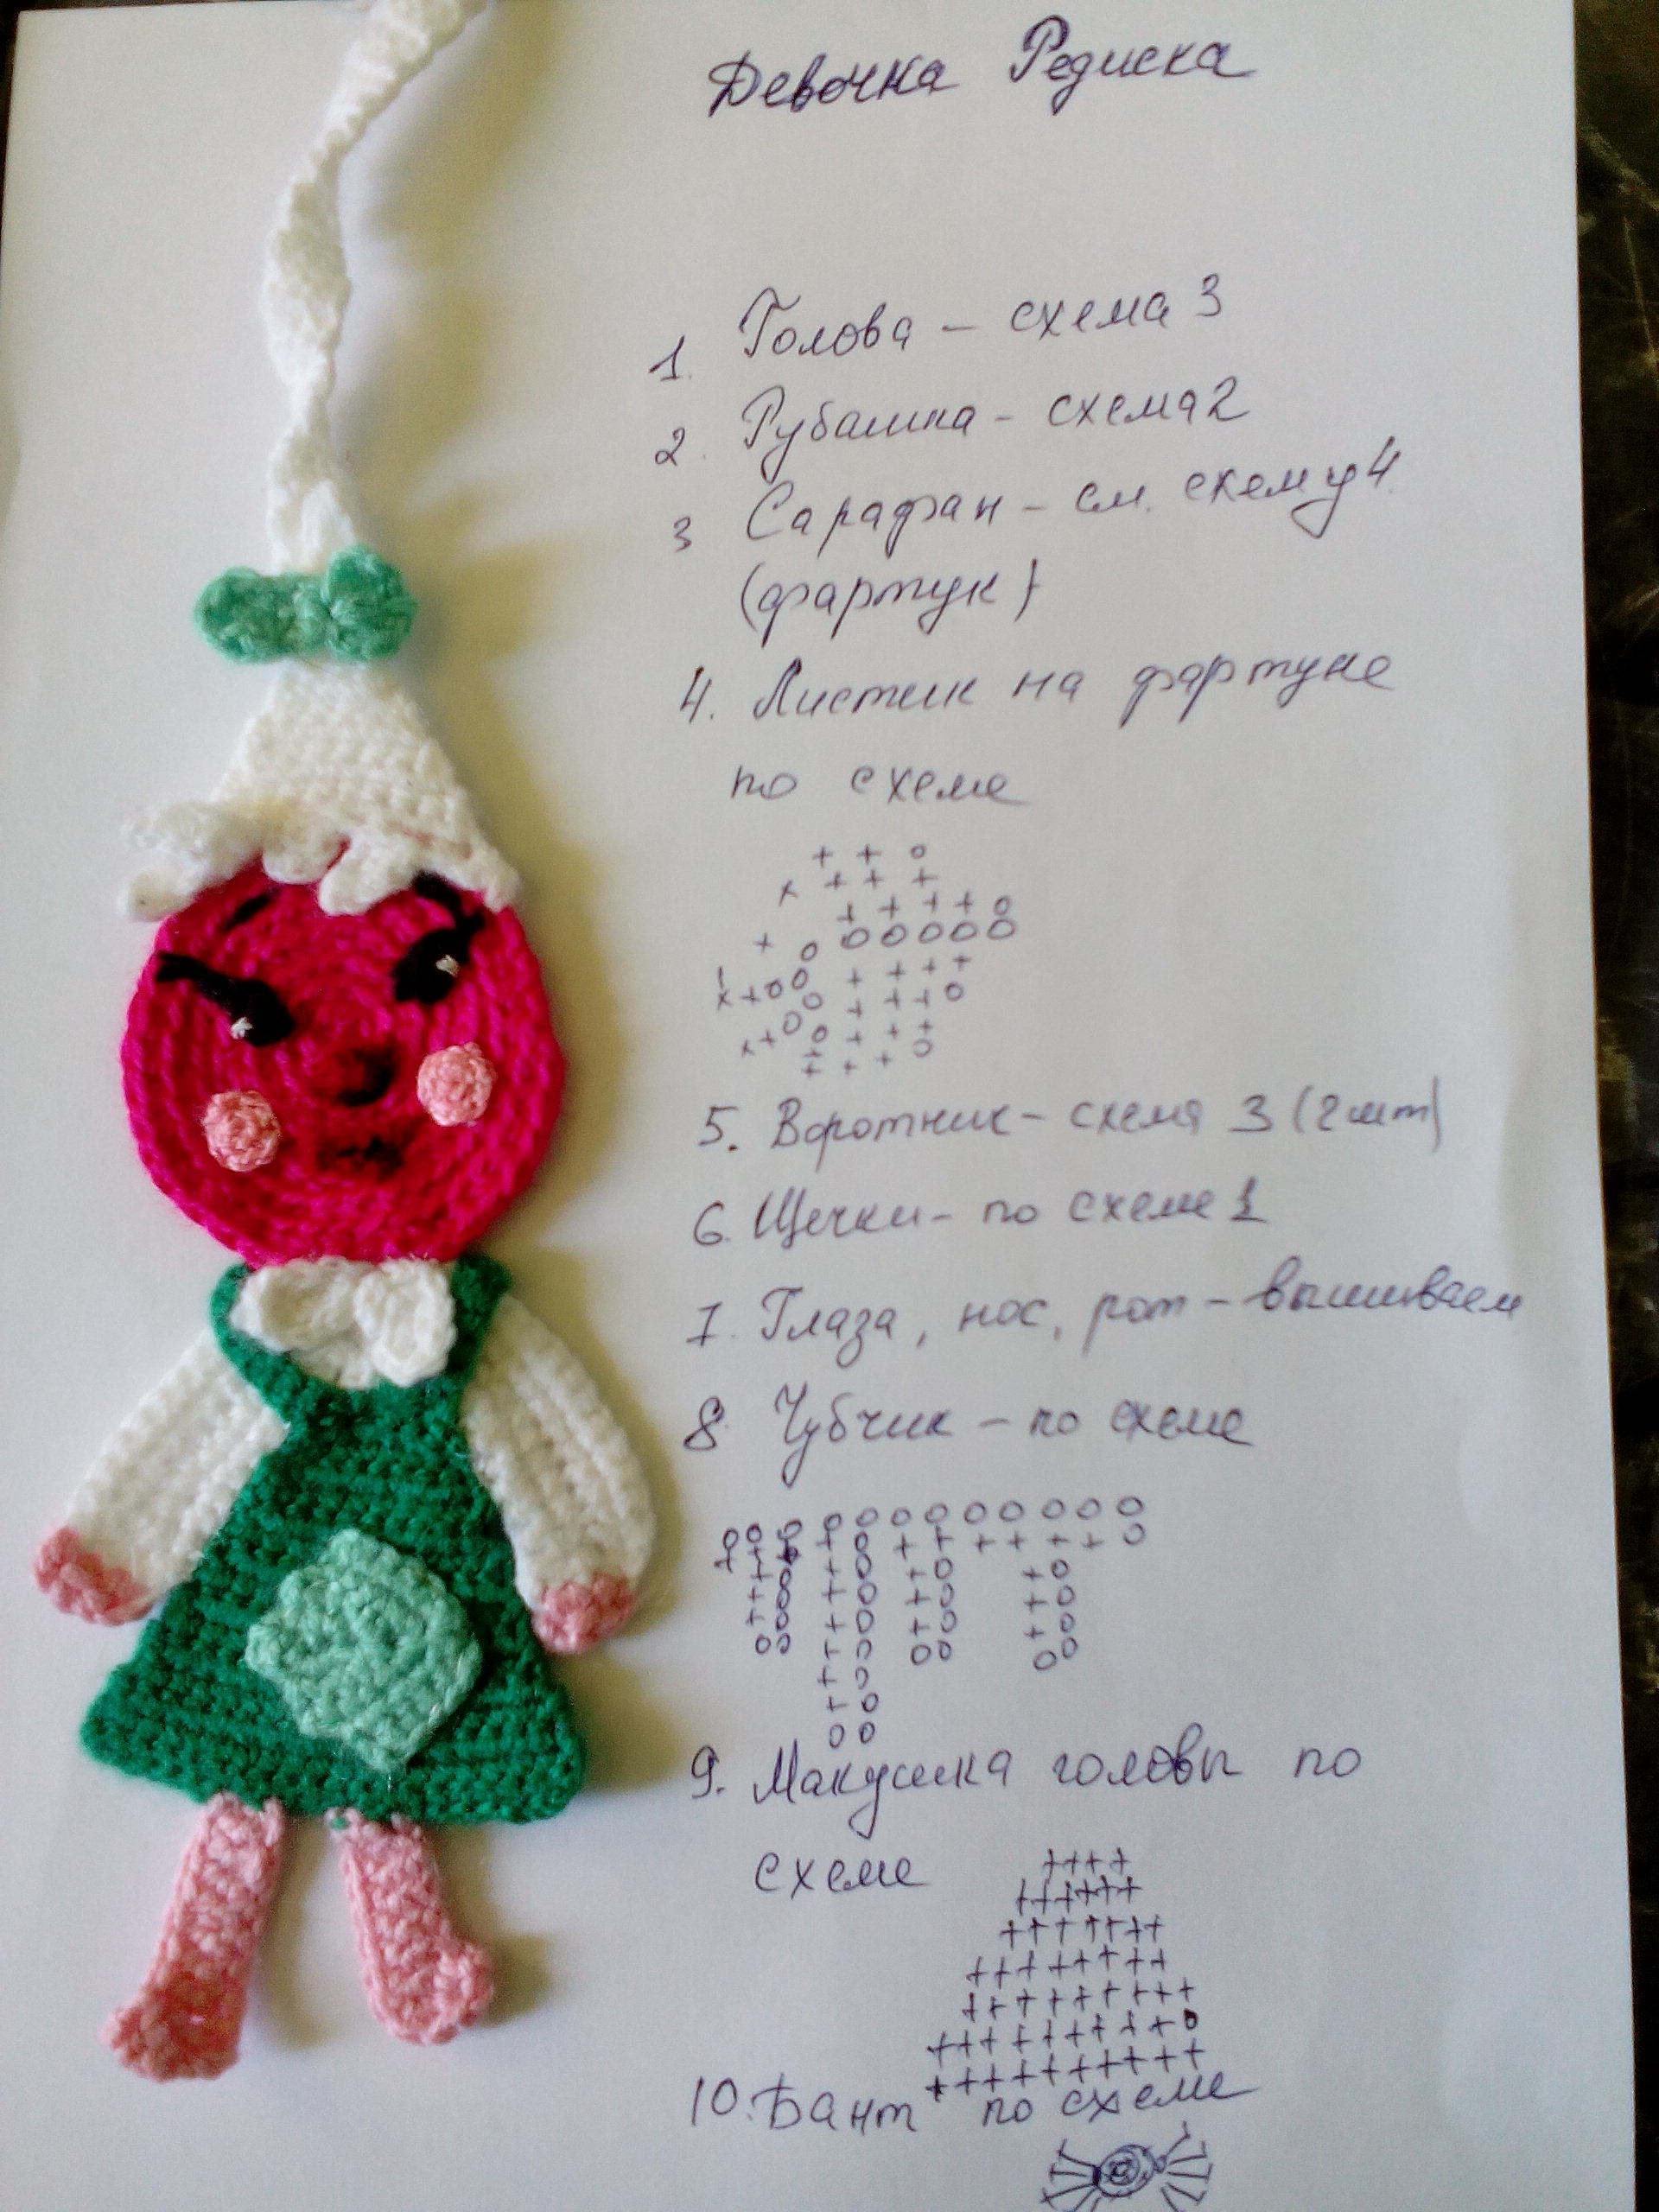 Девочка Редиска
1. Голова - схема 3
2. Рубашка - схема 2
3 Сарафан - см. схему 4.
(фартук)
4. Листик на фартуке
по схеме
5. Воротник - схема 3 (2 шт)
6. Щечки - по схеме 1
7. Глаза, нос, рот - вышиваем
8 Чубчик - по схеме
9. Макушка головы по
схеме
10. Бант по схеме